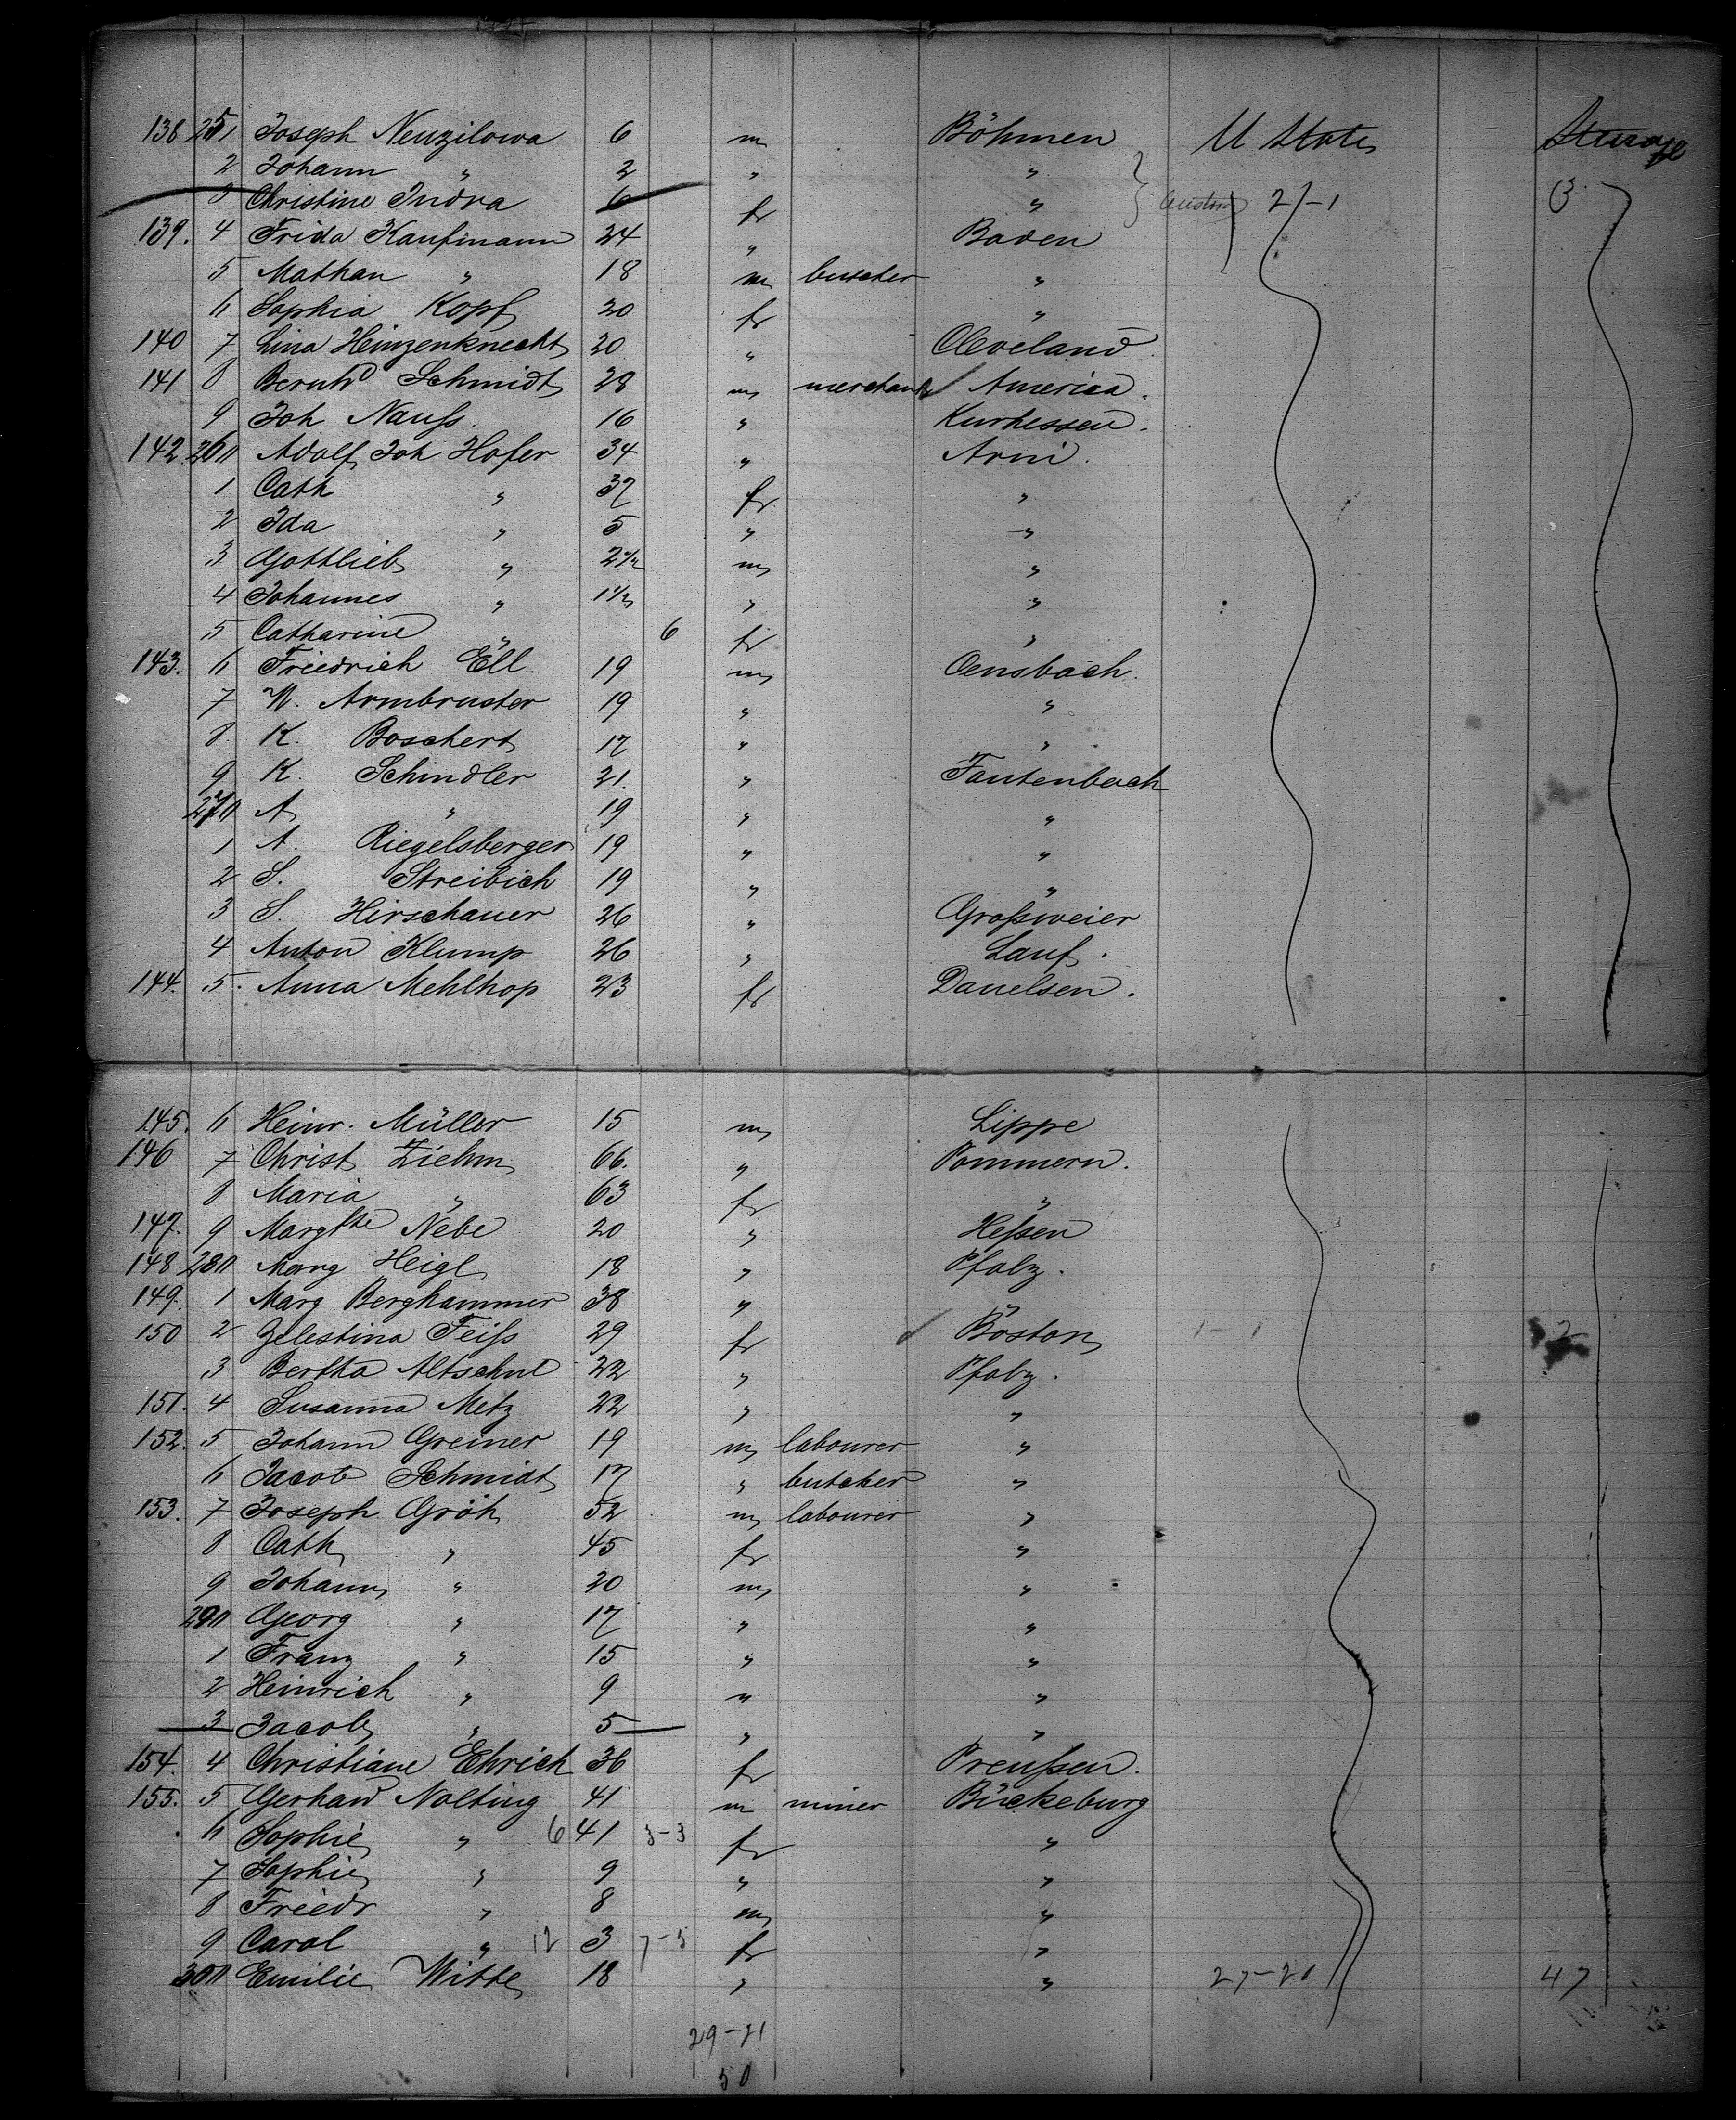 138 251 Joseph Neuzilowa 6 m Böhmen U States Steerage
2 Johann " 2 " "
3 Christine Indra 6 fr " } Austria 2-1 3
139. 4 Frida Kaufmann 24 " Baden
5 Nathan " 18 m butcher "
6 Sophia Kopf 20 fr "
140 7 Lina Heinzenknecht 20 " Cleveland
141 8 Bernhd Schmidt 28 m merchant America.
9 Joh Nauß 16 " Kurhessen.
142 260 Adolf Joh Hofer 34 " Arni.
1 Cath " 37 fr "
2 Ida " 5 " "
3 Gottlieb " 2 1/2 m "
4 Johannes " 1 1/2 " "
5 Catharine " 6 fr "
143. 6 Friedrich Ell 19 m Oensbach.
7 W. Armbruster 19 " "
8 K. Boschert 17 " "
9 K. Schindler 21. " Fautenbach
270 A " 19 " "
1 A. Riegelsberger 19 " "
2 S. Streibich 19 " "
3 S. Hirschauer 26 " Großweier
4 Anton Klump 26 " Lauf.
144. 5. Anna Mehlhop 23 fr Dauelsen.
145. 6 Heinr. Müller 15 m Lippe
146 7 Christ Ziehm 66. " Pommern.
8 Maria " 63 fr "
147. 9 Margthe Nebe 20 " Heßen
148 280 Marg Heigl 18 " Pfalz.
149. 1 Marg Berghammer 38 " "
150 2 Zelestina Feiß 29 fr Boston 1-1 2
3 Bertha Altschul 22 " Pfalz.
151. 4 Susanna Metz 22 " "
152. 5 Johann Greiner 19 m labourer "
6 Jacob Schmidt 17 " butcher "
153. 7 Joseph Gröh 52 m labourer "
8 Cath " 45 fr "
9 Johann " 20 m "
290 Georg " 17 " "
1 Franz " 15 " "
2 Heinrich " 9 " "
3 Jacob " 5 " "
154. 4 Christiane Ehrich 36 fr Preußen.
155. 5 Gerhard Nolting 41 m miner Bückeburg
6 Sophie " 6 41 3-3 fr "
7 Sophie " 9 " "
8 Friedr " 8 m "
9 Carol " 12 3 7-5 fr "
300 Emilie Witte 18 " " 27-20 47
29-21
50